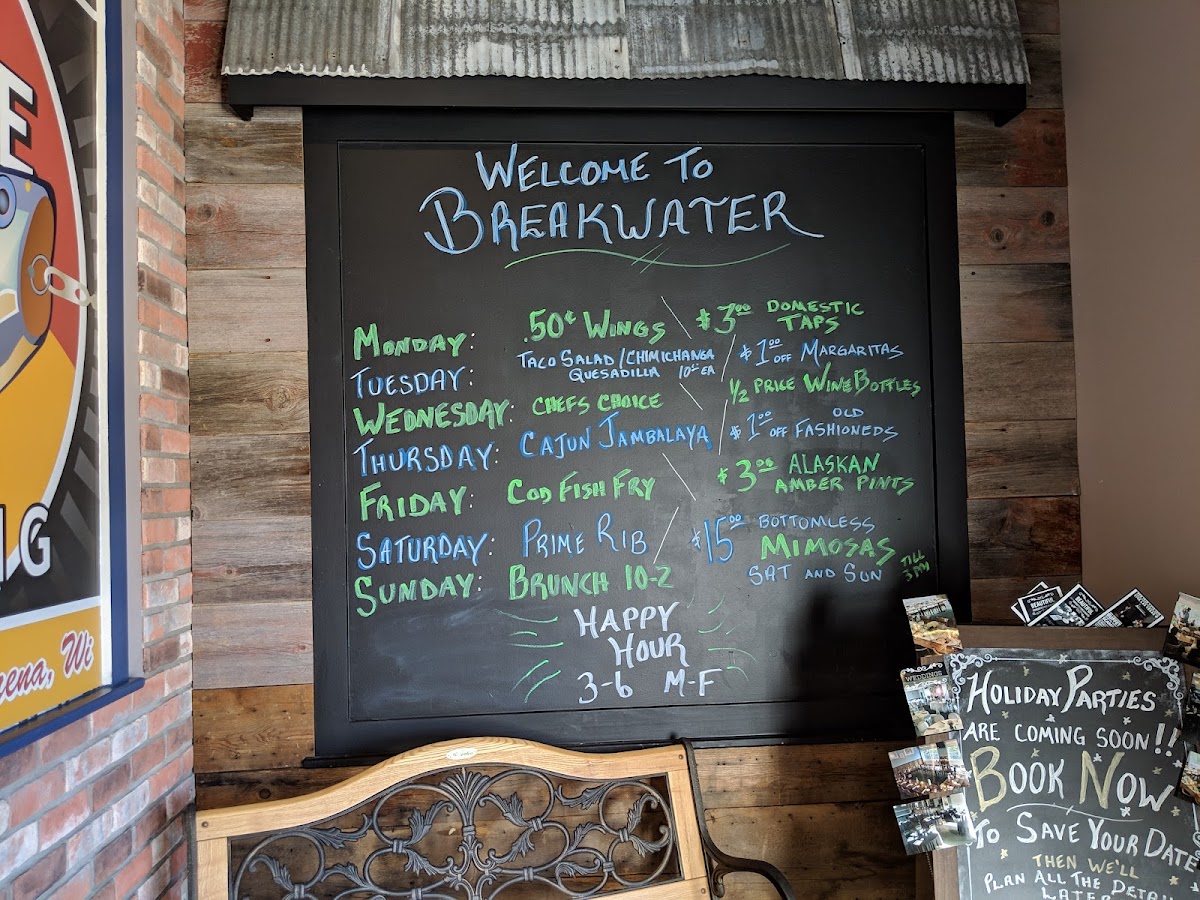 WELCOME TO
BREAKWATER
MONDAY: .50¢ WINGS $3.00 DOMESTIC TAPS
TUESDAY: TACO SALAD / CHIMICHANGA QUESADILLA 10.00 EA $1.00 OFF MARGARITAS
WEDNESDAY: CHEFS CHOICE 1/2 PRICE WINE BOTTLES
THURSDAY: CAJUN JAMBALAYA $1.00 OFF OLD FASHIONEDS
FRIDAY: COD FISH FRY $3.00 ALASKAN AMBER PINTS
SATURDAY: PRIME RIB $15.00 BOTTOMLESS MIMOSAS
SUNDAY: BRUNCH 10-2 SAT AND SUN TILL 3PM
HAPPY
HOUR
3-6 M-F
HOLIDAY PARTIES
ARE COMING SOON!!
BOOK NOW
TO SAVE YOUR DATE
THEN WE'LL
PLAN ALL THE DETAI
LATER
E
G
Wi